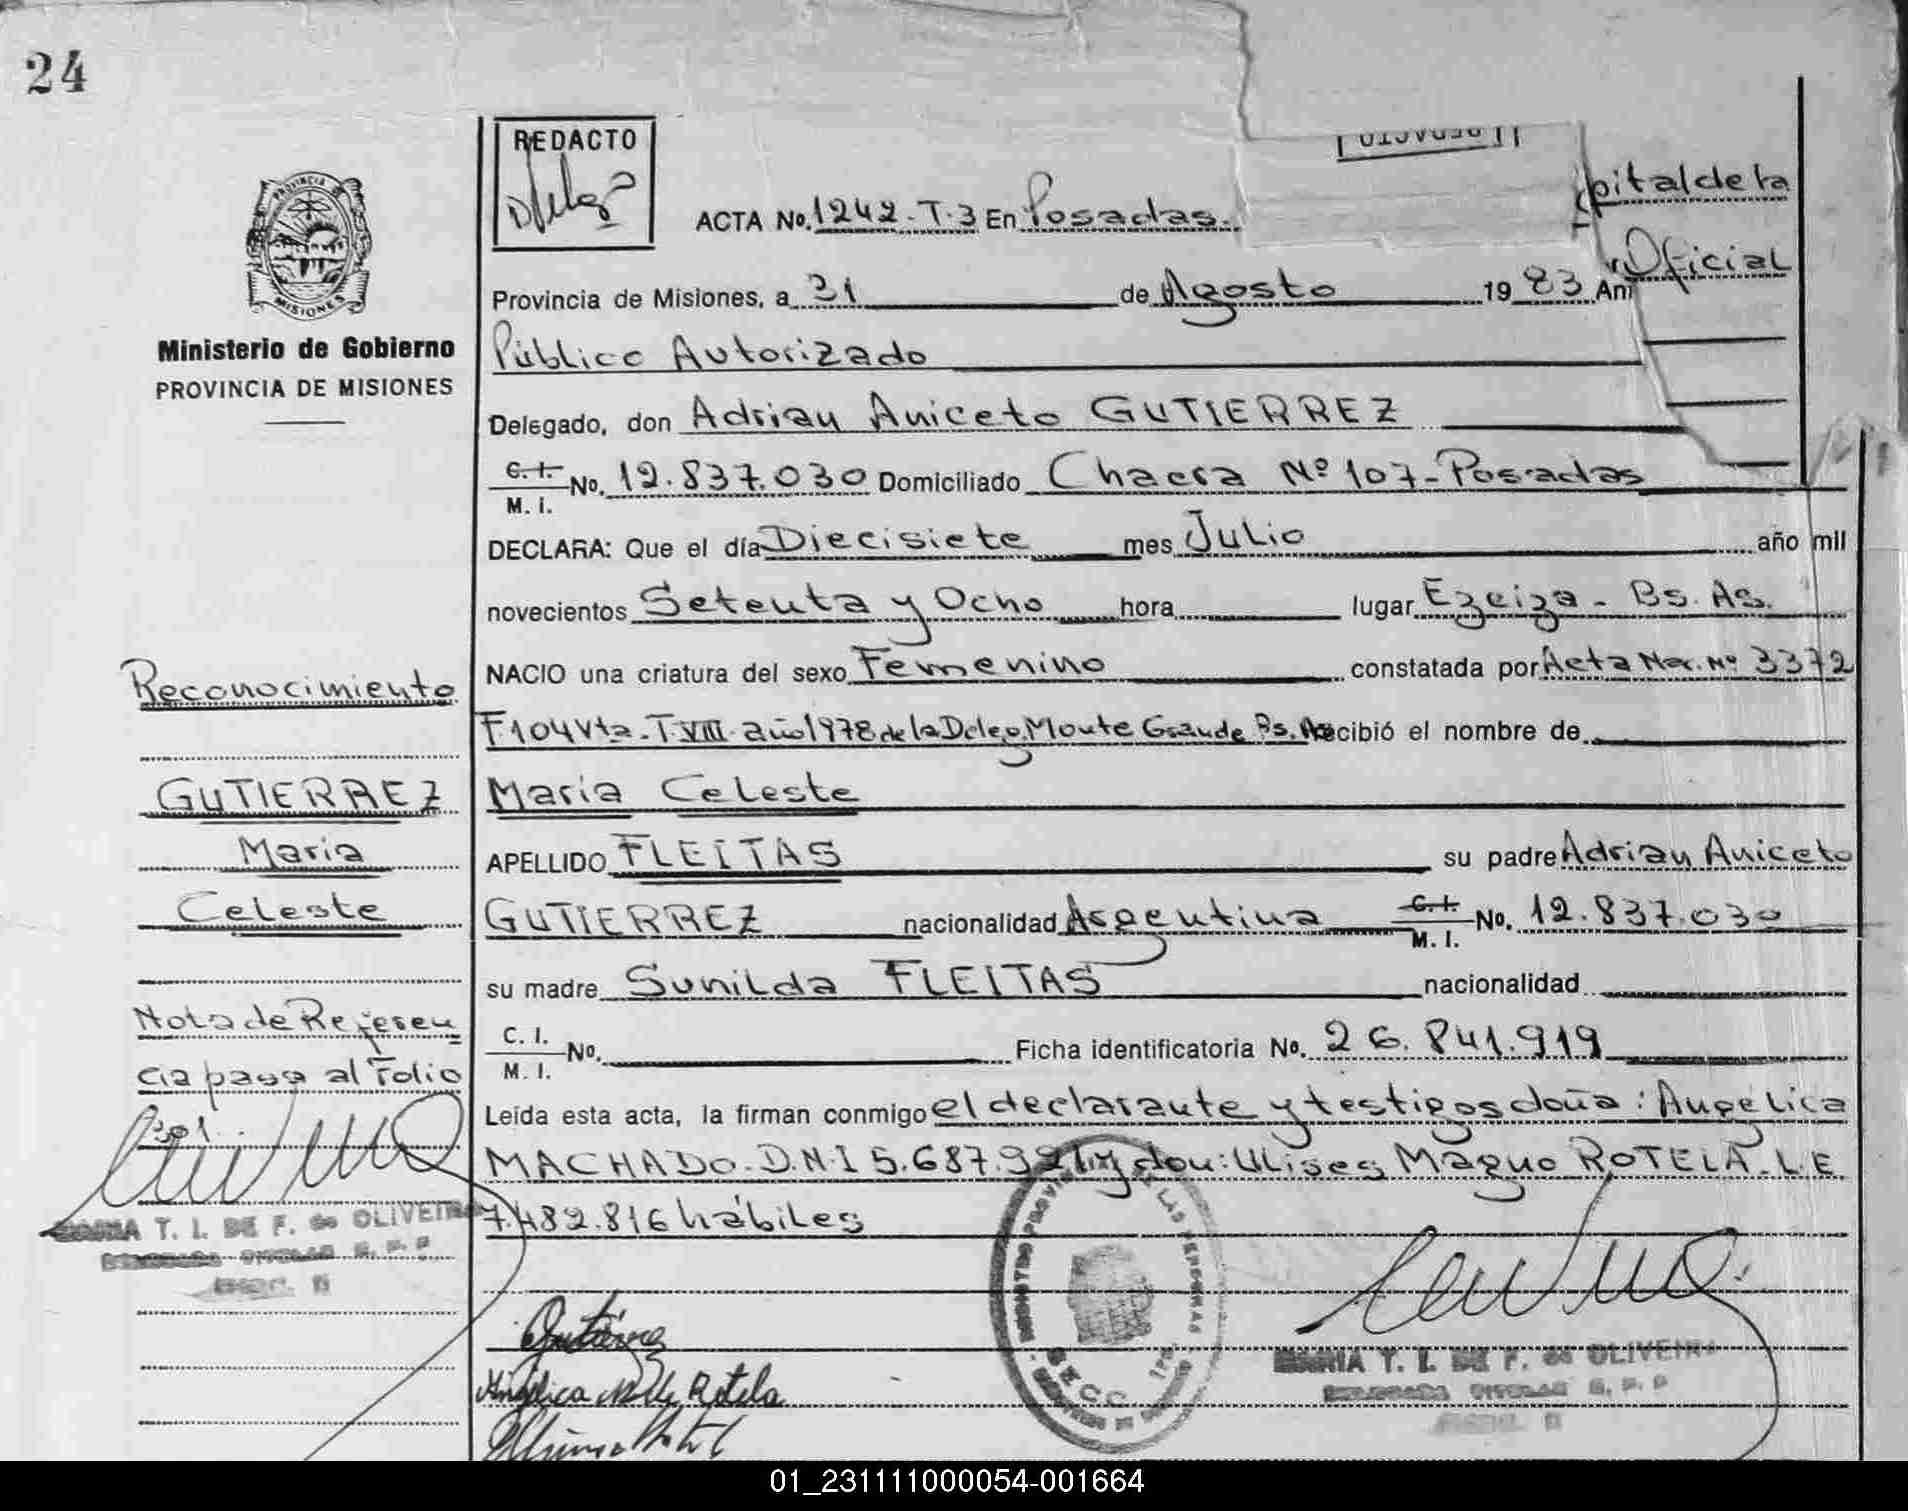 24
REDACTO
REDACTO
PROVINCIA DE
MISIONES
Ministerio de Gobierno
PROVINCIA DE MISIONES
ACTA No. 1242-T-3 En Posadas. pital de la
Provincia de Misiones, a 31 de Agosto 1983 An Oficial
Público Autorizado
Delegado, don Adrian Aniceto GUTIERREZ
C. I. M. I. No. 12.837.030 Domiciliado Chacra Nº 107-Posadas
DECLARA: Que el día Diecisiete mes Julio año mil
novecientos Setenta y Ocho hora lugar Ezeiza - Bs. As.
NACIO una criatura del sexo Femenino constatada por Acta Nac. Nº 3372
F104Vta-T.VIII-año 1978 de la Deleg. Monte Grande Bs. As ecibió el nombre de
Maria Celeste
APELLIDO FLEITAS su padre Adrian Aniceto
GUTIERREZ nacionalidad Argentina C. I. M. I. No. 12.837.030
su madre Sunilda FLEITAS nacionalidad
C. I. M. I. No. Ficha identificatoria No. 26.841.919
Leída esta acta, la firman conmigo el declarante y testigos doña: Angelica
MACHADO-D.N.I 5.687. y don: Ulises Magno ROTELA-L.E
7.482.816 hábiles
Reconocimiento
GUTIERREZ
Maria
Celeste
Nota de Referen
cia pasa al Folio
MARIA T. I. DE F. de OLIVEIRA
DELEGADA TITULAR R. P. P
SECC.
Gutiérrez
Angélica M de Rotela
DE LAS PERSONAS
SECC. 1ra.
MARIA T. I. DE F. de OLIVEIRA
DELEGADA TITULAR R. P. P
01_231111000054-001664